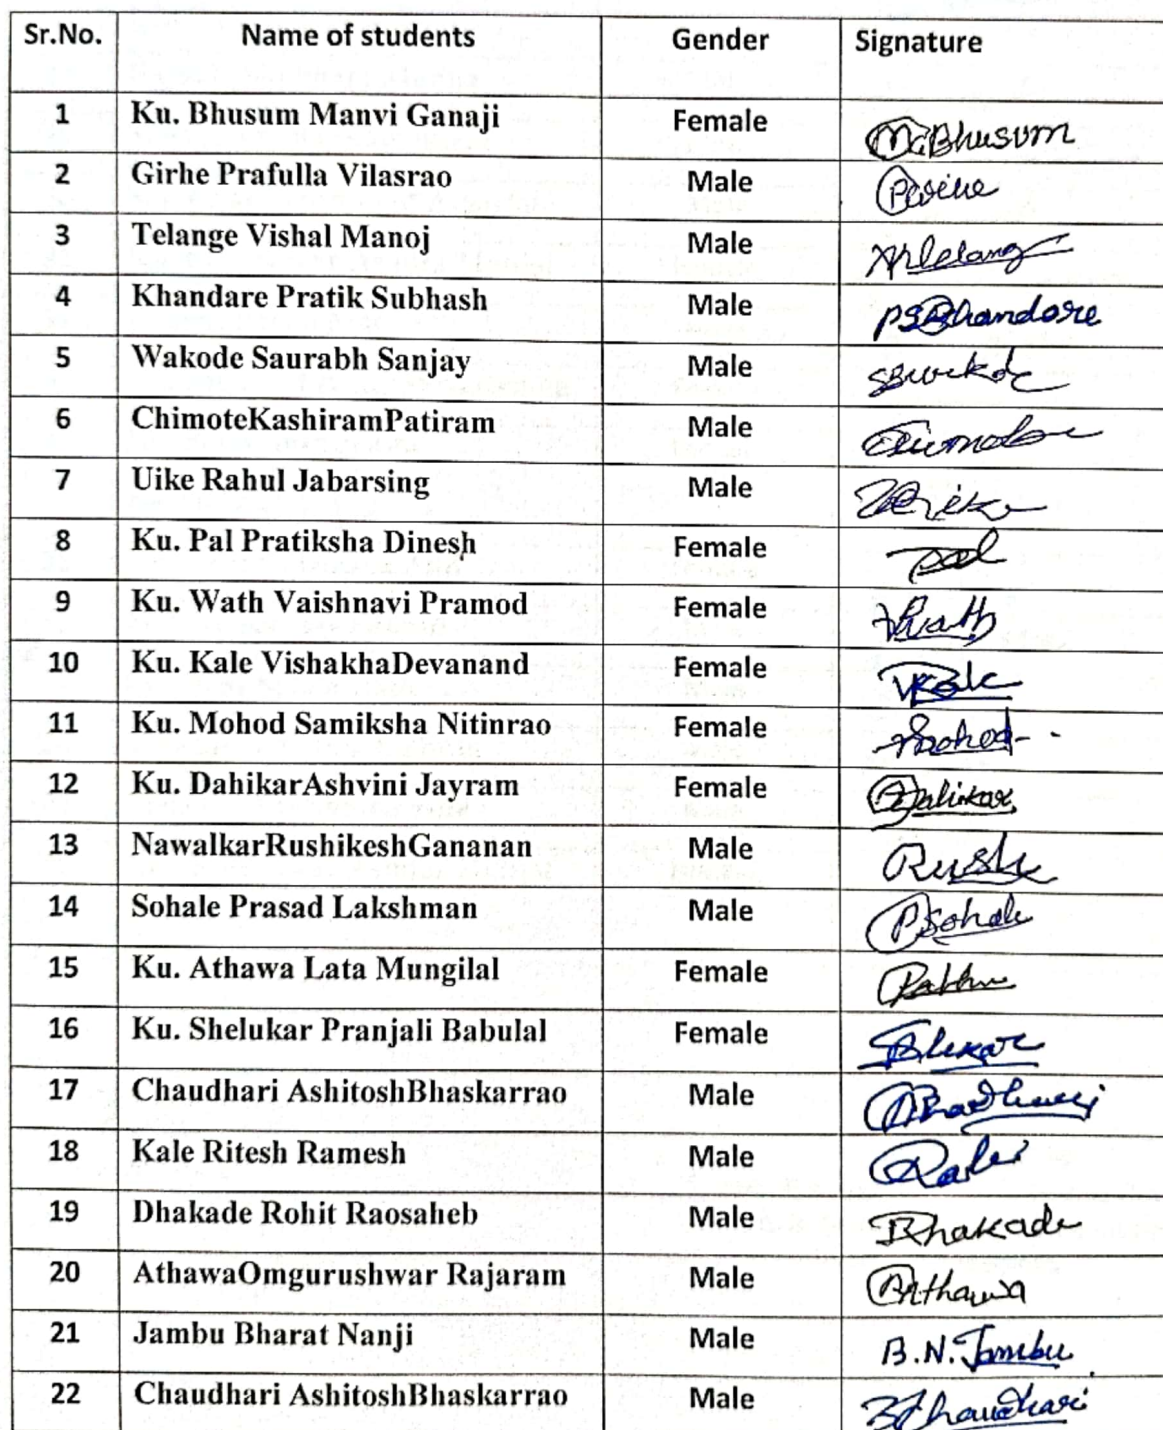 Sr.No. Name of students Gender Signature
1 Ku. Bhusum Manvi Ganaji Female M.Bhusum
2 Girhe Prafulla Vilasrao Male
3 Telange Vishal Manoj Male
4 Khandare Pratik Subhash Male
5 Wakode Saurabh Sanjay Male
6 ChimoteKashiramPatiram Male
7 Uike Rahul Jabarsing Male
8 Ku. Pal Pratiksha Dinesh Female Pal
9 Ku. Wath Vaishnavi Pramod Female
10 Ku. Kale VishakhaDevanand Female
11 Ku. Mohod Samiksha Nitinrao Female
12 Ku. DahikarAshvini Jayram Female
13 NawalkarRushikeshGananan Male
14 Sohale Prasad Lakshman Male
15 Ku. Athawa Lata Mungilal Female
16 Ku. Shelukar Pranjali Babulal Female
17 Chaudhari AshitoshBhaskarrao Male
18 Kale Ritesh Ramesh Male
19 Dhakade Rohit Raosaheb Male
20 AthawaOmgurushwar Rajaram Male
21 Jambu Bharat Nanji Male B.N.Jambu
22 Chaudhari AshitoshBhaskarrao Male